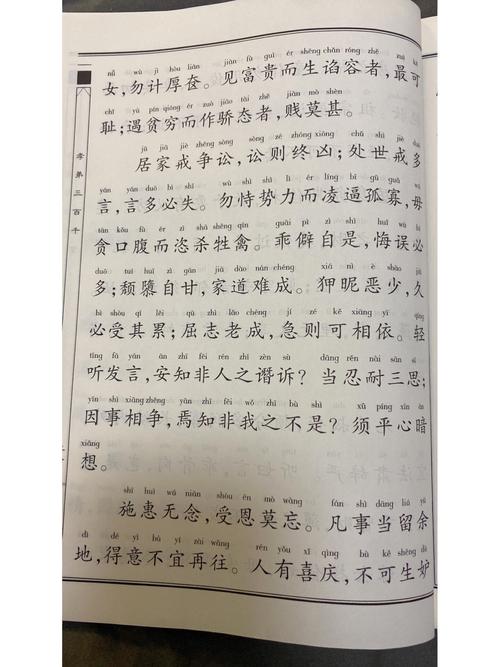 nǚ wù jì hòu lián jiàn fù guì ér shēng chǎn róng zhě zuì kě
女，勿计厚奁。见富贵而生谄容者，最可
chǐ yù pín qióng ér zuò jiāo tài zhě jiàn mò shèn
耻；遇贫穷而作骄态者，贱莫甚。
jū jiā jiè zhēng sòng sòng zé zhōng xiōng chǔ shì jiè duō
居家戒争讼，讼则终凶；处世戒多
yán yán duō bì shī wù shì shì lì ér líng bī gū guǎ wú
言，言多必失。勿恃势力而凌逼孤寡，毋
tān kǒu fù ér zì shā shēng qín guāi pì zì shì huǐ wù bì
贪口腹而恣杀牲禽。乖僻自是，悔误必
duō tuí huī zì gān jiā dào nán chéng xiá nì è shào jiǔ
多；颓隳自甘，家道难成。狎昵恶少，久
bì shòu qí lěi qū zhì lǎo chéng jí zé kě xiāng yī qīng
必受其累；屈志老成，急则可相依。轻
tīng fā yán ān zhī fēi rén zhī zèn sù dāng rěn nài sān sī
听发言，安知非人之谮诉？当忍耐三思；
yīn shì xiāng zhēng yān zhī fēi wǒ zhī bú shì xū píng xīn àn
因事相争，焉知非我之不是？须平心暗
xiǎng
想。
shī huì wú niàn shòu ēn mò wàng fán shì dāng liú yú
施惠无念，受恩莫忘。凡事当留余
dì dé yì bù yí zài wǎng rén yǒu xǐ qìng bù kě shēng dù
地，得意不宜再往。人有喜庆，不可生妒
孝弟三百千